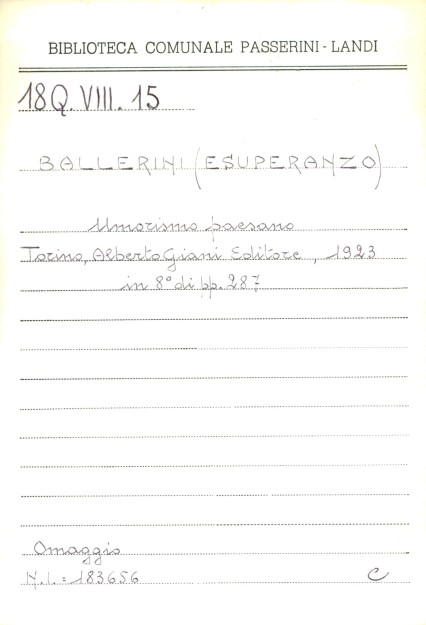 BIBLIOTECA COMUNALE PASSERINI - LANDI
18Q. VIII. 15
BALLERINI (ESUPERANZO)
Umorismo paesano
Torino, Alberto Giani Editore, 1923
in 8° di pp. 287
Omaggio
N.I.: 183656 C